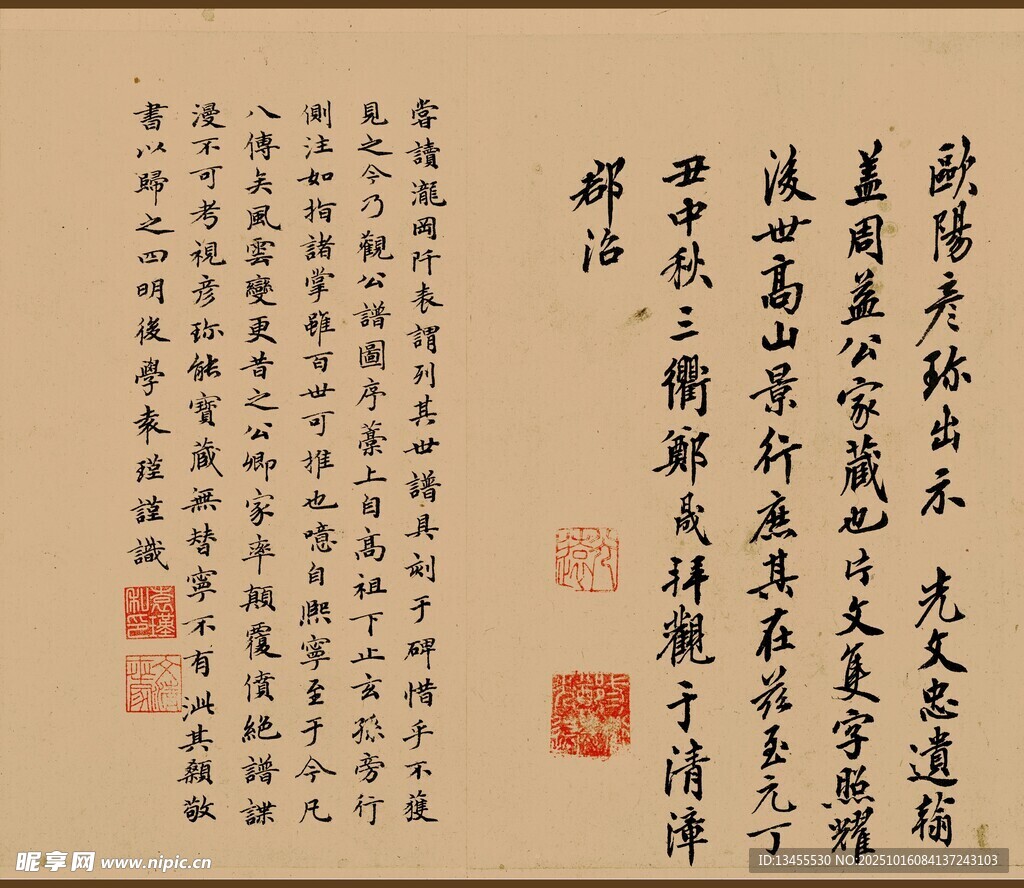 歐陽彦珎出示 先文忠遺翰
盖周益公家藏也片文隻字照耀
後世高山景行庶其在兹至元丁
丑中秋三衢鄭晟拜觀于清漳
郡治
嘗讀瀧岡阡表謂列其世譜具刻于碑惜乎不獲
見之今乃觀公譜圖序藁上自高祖下止玄孫旁行
側注如指諸掌雖百世可推也噫自熈寧至于今凡
八傳矣風雲變更昔之公卿家率顛覆僨絶譜諜
漫不可考視彦珎能寶藏無替寧不有泚其顙敬
書以歸之四明後學袁瑾謹識
昵享网 www.nipic.cn
ID:13455530 NO:20251016084137243103